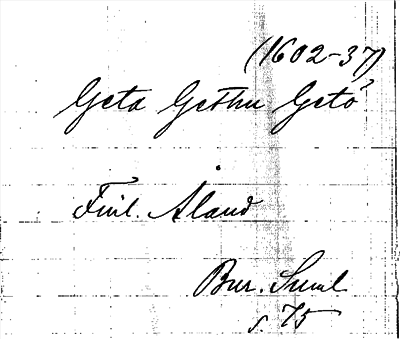 (1602-37)
Geta Gethu Getö
Finl. Åland
Bur. Suml
s. 75